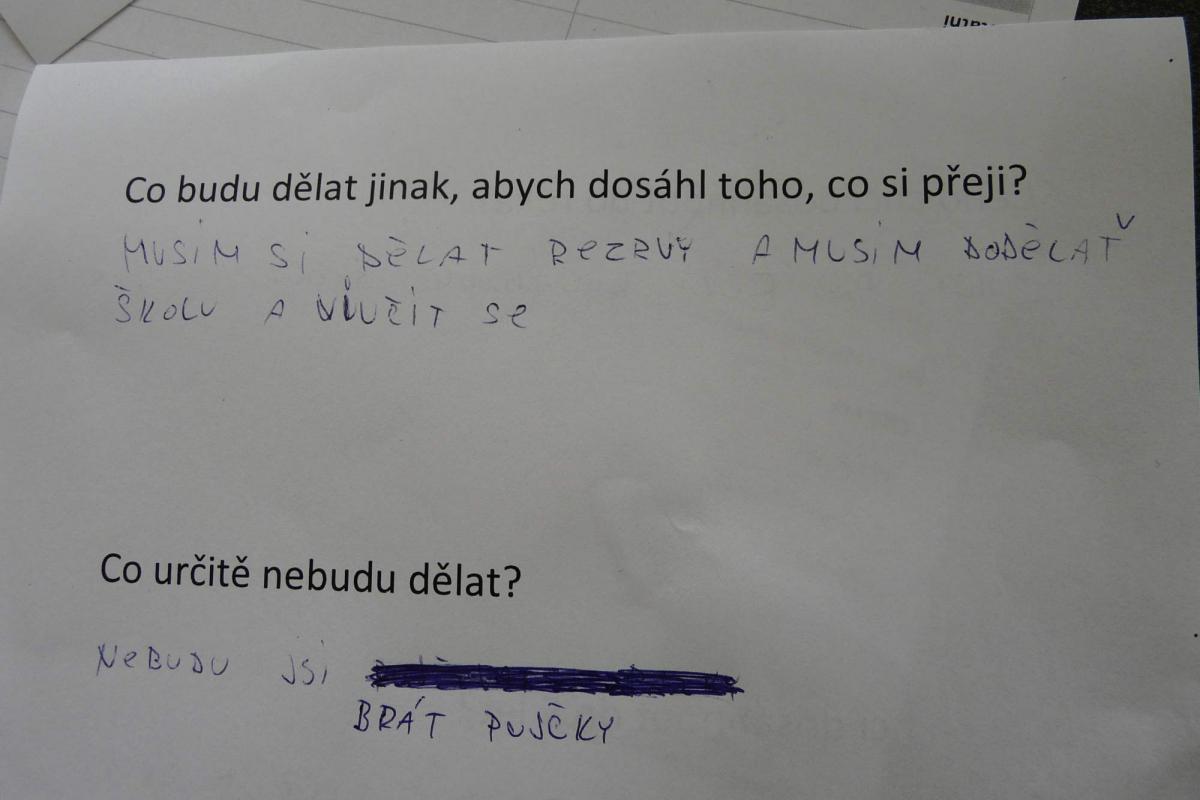 Co budu dělat jinak, abych dosáhl toho, co si přeji?
MUSÍM SI DĚLAT REZRVY A MUSÍM DODĚLAŤ
ŠKOLU A VIUČIT SE
Co určitě nebudu dělat?
NEBUDU JSI
BRÁT PUJČKY